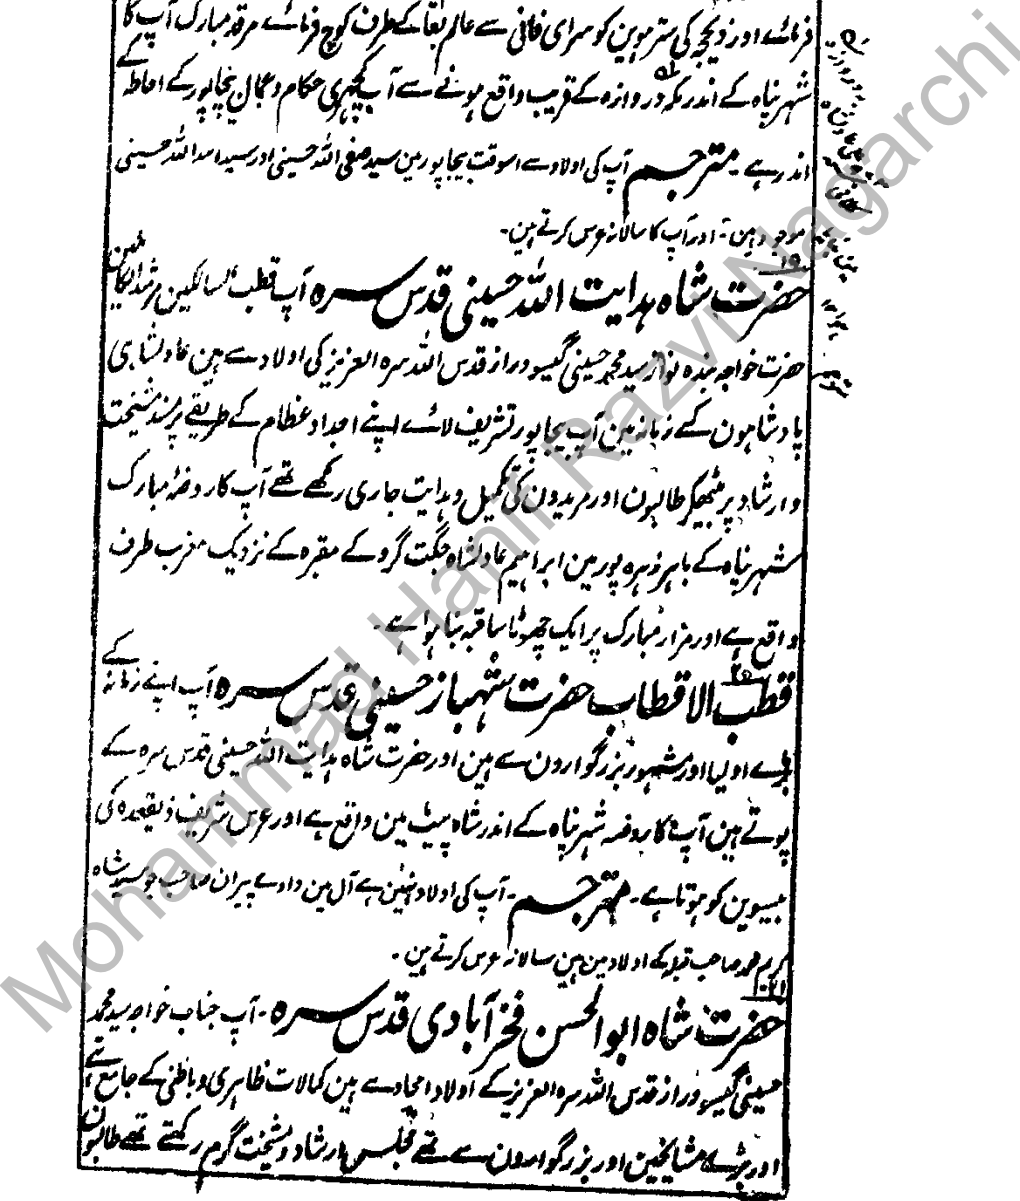 فرمائے اور ذیحجہ کی سترہوین کو سرای فانی سے عالم بقا کے طرف کوچ فرمائے مرقد مبارک آپ کا
شہر پناہ کے اندر مکہ دروازہ کے قریب واقع ہونے سے آپ کچہری حکام و عمال بیجاپور کے احاطہ کے
اندر ہے ۔ مترجم آپ کی اولاد سے اسوقت بیجاپور مین سید صفی اللہ حسینی اور سید اسد اللہ حسینی
موجود ہین ۔ اور آپ کا سالانہ عرس کرتے ہین۔
۱۹
حضرت شاہ ہدایت اللہ حسینی قدس سرہ آپ قطب السالکین مرشد الکاملین
حضرت خواجہ بندہ نواز سید محمد حسینی گیسو دراز قدس اللہ سرہ العزیز کی اولاد سے ہین عادلشاہی
پادشاہون کے زمانہ مین آپ بیجاپور تشریف لائے اپنے اجداد عظام کے طریقے پر مسند مشیخت
و ارشاد پر بیٹھیکر طالبون اور مریدون کی تکمیل و ہدایت جاری رکھے تھے آپ کا روضہ مبارک
شہر پناہ کے باہر زہرہ پور مین ابراہیم عادلشاہ جگت گرو کے مقبرہ کے نزدیک مغرب طرف
واقع ہے اور مزار مبارک پر ایک چھوٹا سا قبہ بنا ہوا ہے ۔
۲۰
قطب الاقطاب حضرت شہباز حسینی قدس سرہ آپ اپنے زمانہ کے
بڑے اولیا اور مشہور بزرگوارون سے ہین اور حضرت شاہ ہدایت اللہ حسینی قدس سرہ کے
پوتے ہین آپ کا روضہ شہر پناہ کے اندر شاہ پیٹ مین واقع ہے اور عرس شریف ذیقعدہ کی
بیسوین کو ہوتا ہے ۔ مترجم ۔ آپ کی اولاد نہین ہے آل مین دادے پیران صاحب جو سید شاہ
کریم محمد صاحب قبلہ کے اولاد مین ہین سالانہ عرس کرتے ہین ۔
۲۱
حضرت شاہ ابو الحسن فخر آبادی قدس سرہ ۔ آپ جناب خواجہ سید محمد
حسینی گیسو دراز قدس اللہ سرہ العزیز کے اولاد امجاد سے ہین کمالات ظاہری و باطنی کے جامع تھے
اور بڑے مشایخین اور بزرگوارون سے تھے مجلس ارشاد و مشیخت گرم رکھتے تھے طالبون
Mohammad Hanif Razvi Nagarchi